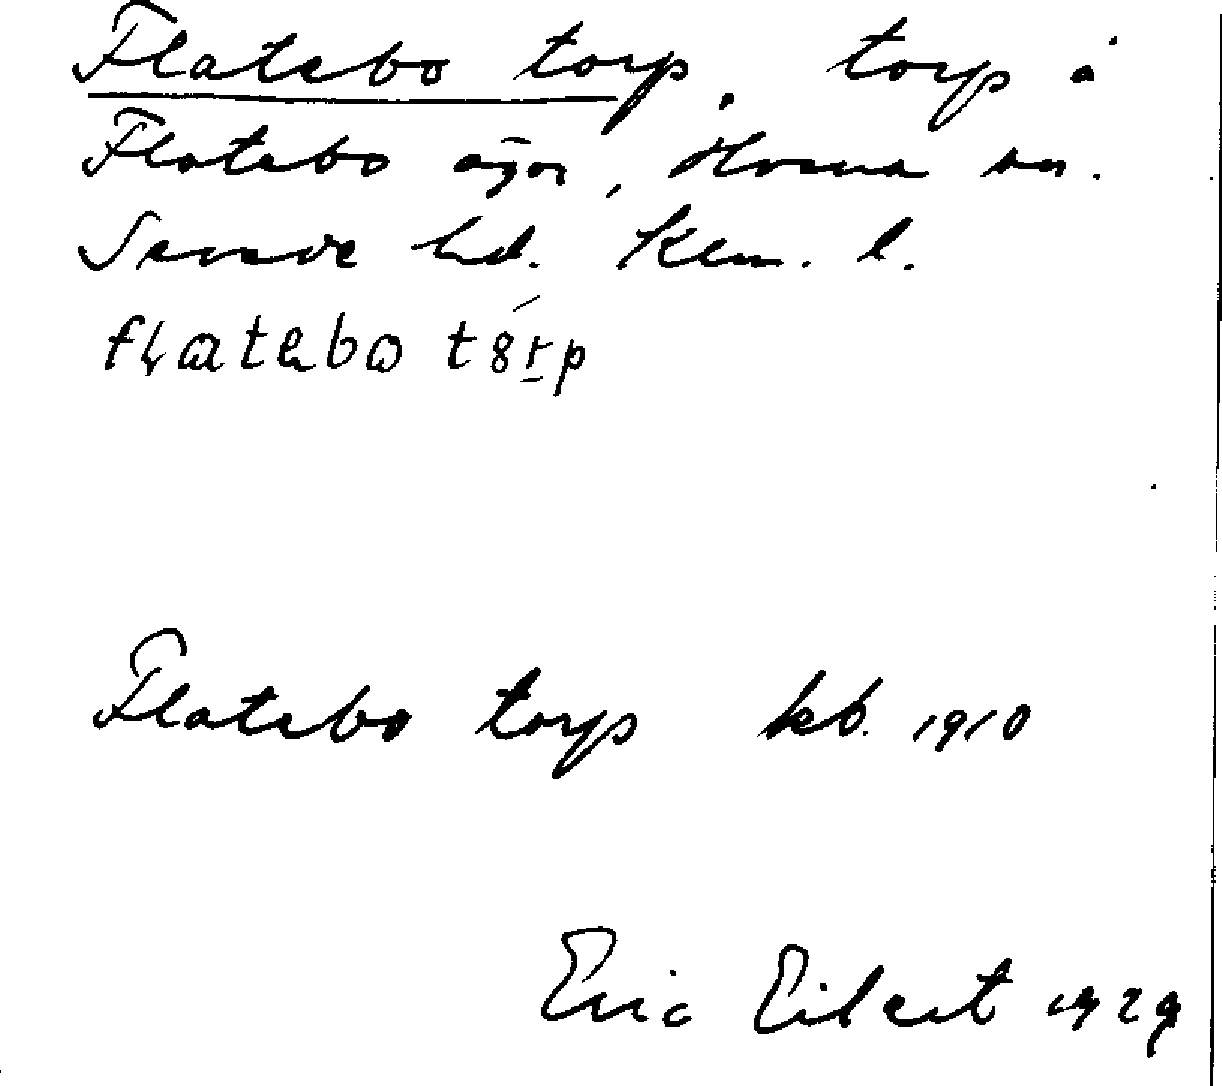 Flatebo torp, torp å
Flatebo ägor, Horna sn.
Sevede hd. Klm. l.
flatebo tȣrp
Flatebo torp kb. 1910
Eric Eilert 1929